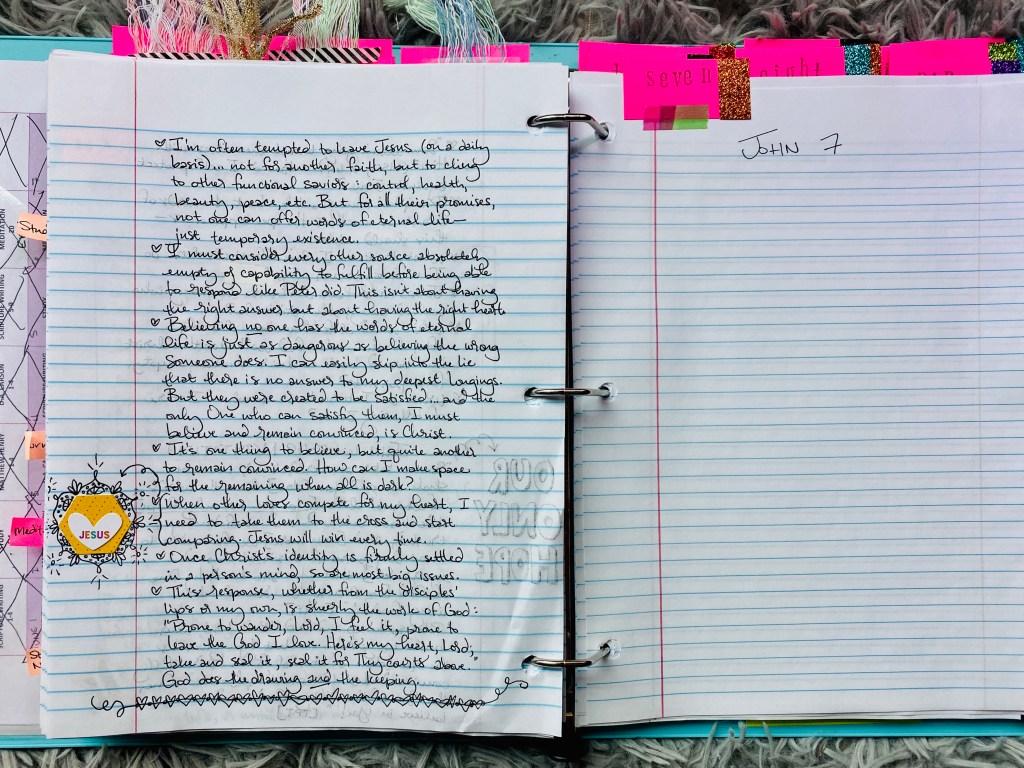 ♡ I'm often tempted to leave Jesus (on a daily
basis)... not for another faith, but to cling
to other functional saviors: control, health,
beauty, peace, etc. But for all their promises,
not one can offer words of eternal life—
just temporary existence.
♡ I must consider every other source absolutely
empty of capability to fulfill before being able
to respond like Peter did. This isn't about having
the right answer but about having the right heart.
♡ Believing no one has the words of eternal
life is just as dangerous as believing the wrong
someone does. I can easily slip into the lie
that there is no answer to my deepest longings.
But they were created to be satisfied... and the
only One who can satisfy them, I must
believe and remain convinced, is Christ.
♡ It's one thing to believe, but quite another
to remain convinced. How can I make space
for the remaining when all is dark?
♡ When other loves compete for my heart, I
need to take them to the cross and start
comparing. Jesus will win every time.
♡ Once Christ's identity is firmly settled
in a person's mind, so are most big issues.
♡ This response, whether from the disciples'
lips or my own, is sheerly the work of God:
"Prone to wander, Lord, I feel it, prone to
leave the God I love. Here's my heart, Lord,
take and seal it, seal it for Thy courts above."
God does the drawing and the keeping.
JESUS
OUR
ONLY
HOPE
seven
eight
JOHN 7
MEDITATION
SCRIPTURE WRITING
D.A. CARSON
MATTHEW HENRY